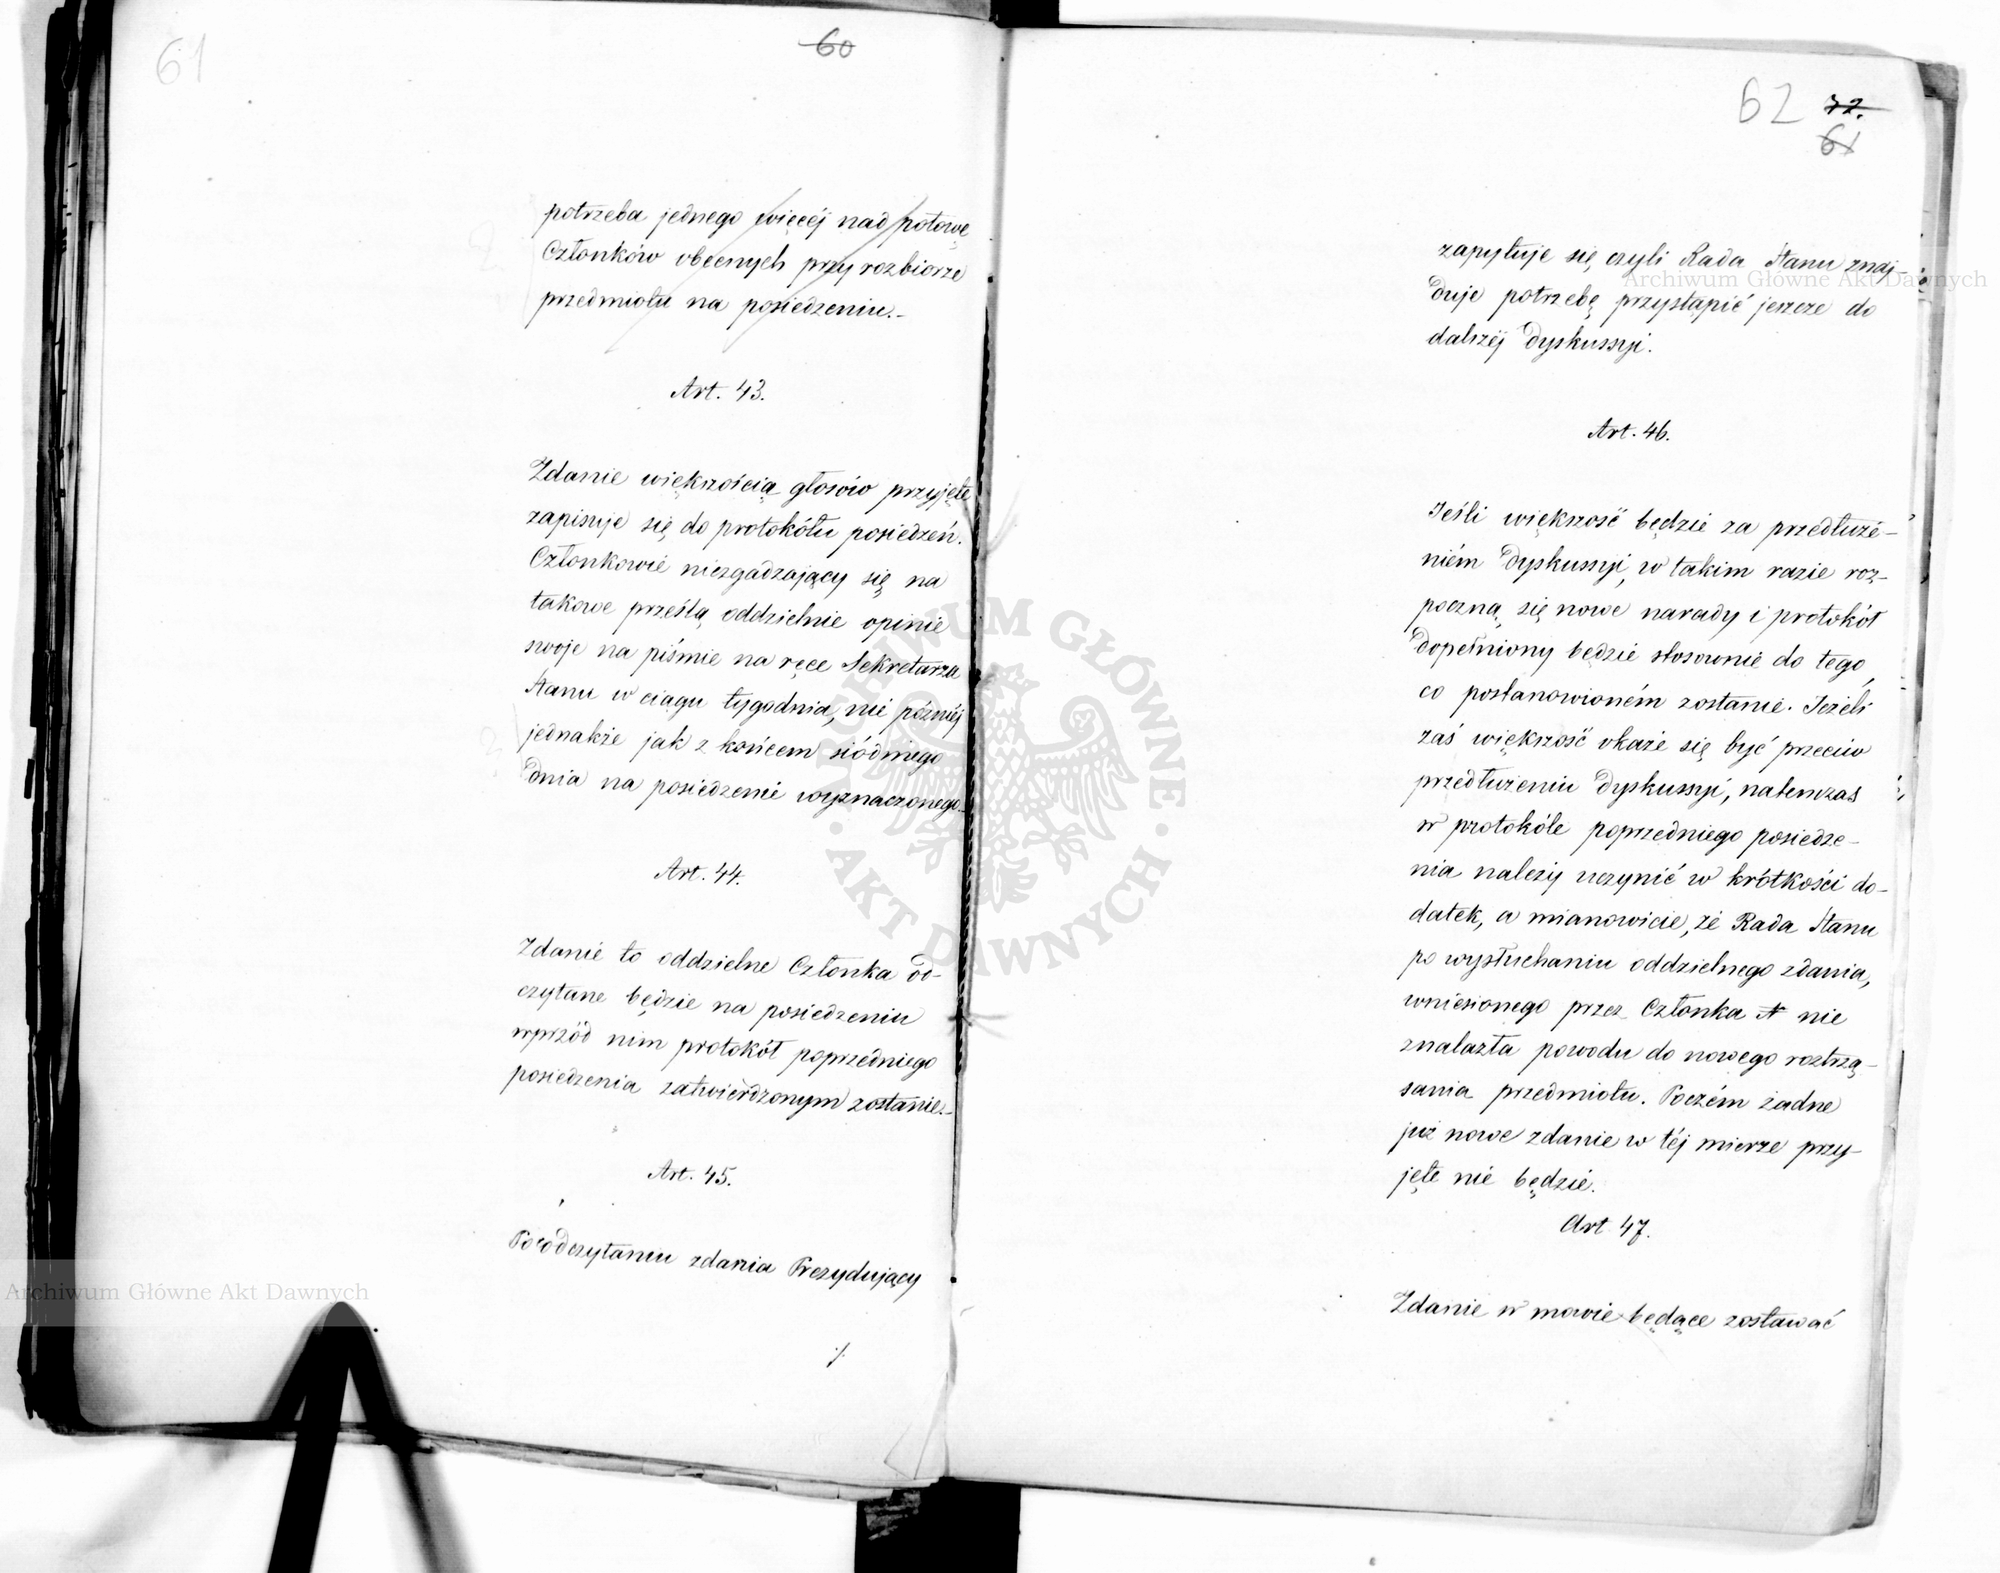 61
60
potrzeba jednego więcéj nad połowę
Członków obecnych przy rozbiorze
przedmiotu na posiedzeniu.-
Art. 43.
Zdanie większością głosów przyjęte
zapisuje się do protokółu posiedzeń.
Członkowie niezgadzający się na
takowe prześlą oddzielnie opinie
swoje na piśmie na ręce Sekretarza
Stanu w ciągu tygodnia, nie późniéj
jednakże jak z końcem siódmego
dnia na posiedzenie wyznaczonego.
Art. 44.
Zdanie to oddzielne Członka od-
czytane będzie na posiedzeniu
wprzód nim protokół poprzedniego
posiedzenia zatwierdzonym zostanie.-
Art. 45.
Po odczytaniu zdania Prezydujący
./.
62 72.
61
zapytuje się, czyli Rada Stanu znaj-
duje potrzebę przystąpić jeszcze do
dalszéj dyskussyi.
Art. 46.
Jeśli większość będzie za przedłuże-
niém dyskussyi, w takim razie roz-
poczną się nowe narady i protokół
dopełniony będzie stosownie do tego,
co postanowioném zostanie. Jeżeli
zaś większość okaże się być przeciw
przedłużeniu dyskussyi, natenczas
w protokóle poprzedniego posiedze-
nia należy uczynić w krótkości do-
datek, a mianowicie, że Rada Stanu
po wysłuchaniu oddzielnego zdania,
wniesionego przez Członka N nie
znalazła powodu do nowego roztrzą-
sania przedmiotu. Poczém żadne
już nowe zdanie w téj mierze przy-
jęte nie będzie.
Art 47.
Zdanie w mowie będące zostawać
Archiwum Główne Akt Dawnych
Archiwum Główne Akt Dawnych
ARCHIWUM GŁÓWNE · AKT DAWNYCH ·